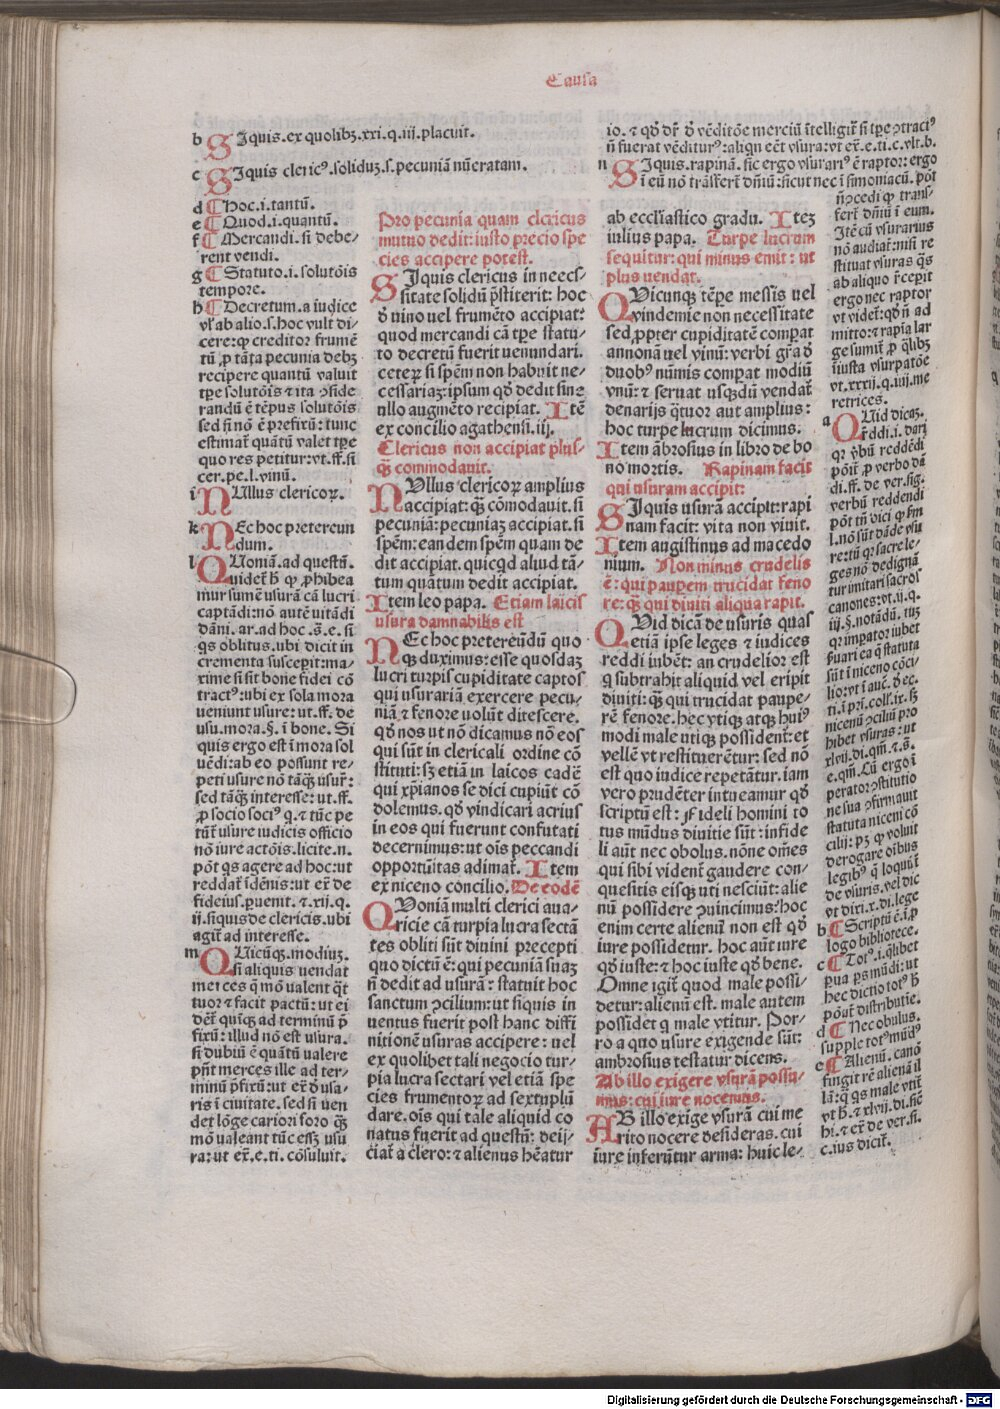 Causa
b SIquis.ex quolibꝫ.xxi.q.iii.placuit.
c SIquis clericꝰ.soliduꝫ.s.pecuniā nūeratam.
d ¶ hoc.i.tantū.
e ¶ Quod.i.quantū.
f ¶ Mercandi.si debe/
rent vendi.
g ¶ Statuto.i.solutōis
tempore.
h ¶ Decretum.a iudice
vl' ab alio.s.hoc vult di/
cere:ꝙ creditor frumē
tū ꝓ tāta pecunia debꝫ
recipere quantū valuit
tꝑe solutōis ⁊ ita ↄside
randū ē tēpus solutōis
sed si nō ē prefixū:tunc
estimat̄ quātū valet tꝑe
quo res petitur:vt.ff.si
cer.pe.l.vinū.
i NUllus clericoꝝ.
k NEc hoc pretereun
dum.
l QUoniā.ad questū.
Quidet̄ h̄ ꝙ ꝓhibea
mur sumē usurā cā lucri
captādi:nō autē uitādi
dāni.ar.ad hoc.s̄.e.si
qs oblitus.ubi dicit in
crementa suscepit:ma/
xime si sit bone fidei cō
tractꝰ:ubi ex sola mora
ueniunt usure:ut.ff.de
usu.mora.§.i bone.Si
quis ergo est ī mora sol
uēdi:ab eo possunt re/
peti usure nō tāꝗ̄ usur̄:
sed tāꝗ̄ interesse:ut.ff.
ꝓ socio sociꝰ q.⁊ tūc pe
tūt̄ usure iudicis officio
nō iure actōis.licite.n.
pōt qs agere ad hoc:ut
reddat̄ īdēnis:ut er̄ de
fideiuſ.ꝑuenit.⁊.xij.q.
ij.siquis de clericis.ubi
agit̄ ad interesse.
m QUicūqꝫ.modiuꝫ.
si aliquis uendat
merces q̄ mō ualent q̄t
tuor ⁊ facit pactū:ut ei
det̄ quīqꝫ ad terminū p̄
fixū:illud nō est usura.
si dubiū ē quātū ualere
pn̄t merces ille ad ter/
minū p̄fixū:ut er̄ ꝺ usa/
ris ī ciuitate.sed si uen
det lōge cariori foro ꝗ̄
mō ualeant tūc essꝫ usu
ra:ut er̄.e.ti.cōsuluit.
Pro pecunia quam clericus
mutuo dedit:iusto precio spe
cies accipere potest.
SIquis clericus in necef/
sitate solidū p̄stiterit:hoc
ꝺ uino uel frumēto accipiat:
quod mercandi cā tꝑe statu/
to decretū fuerit uenundari.
ceteꝝ si spēm non habuit ne/
cessariaꝫ:ipsum qđ dedit sine
ullo augmēto recipiat. Itē
ex concilio agathensi.iij.
Clericus non accipiat plus/
ꝗ̄ commodauit.
NUllus clericoꝝ amplius
accipiat:ꝗ̄ cōmodauit.si
pecuniā:pecuniaꝫ accipiat.si
spēm:eandem spēm quam de
dit accipiat.quicqd aliud tā/
tum quātum dedit accipiat.
Item leo papa. Etiam laicis
usura damnabilis est
NEc hoc pretereūdū quo
qꝫ duximus:esse quosdaꝫ
lucri turpis cupiditate captos
qui usurariā exercere pecu/
niā ⁊ fenore uolūt ditescere.
qđ nos ut nō dicamus nō eos
qui sūt in clericali ordine cō
stituti:sꝫ etiā in laicos cadē
qui xp̄ianos se dici cupiūt cō
dolemus.qđ vindicari acrius
in eos qui fuerunt confutati
decernimus:ut ois peccandi
opportūitas adimat̄. Item
ex niceno concilio. De eodē
QUoniā multi clerici aua/
ricie cā turpia lucra sectā
tes obliti sūt diuini precepti
quo dictū ē:qui pecuniā suaꝫ
n̄ dedit ad usurā:statuit hoc
sanctum ↄcilium:ut siquis in
uentus fuerit post hanc diffi
nitionē usuras accipere:uel
ex quolibet tali negocio tur/
pia lucra sectari vel etiā spe
cies frumentoꝝ ad sextuplū
dare.ois qui tale aliquid co
natus fuerit ad questū:deij/
ciat̄ a clero:⁊ alienus hēatur
ab eccliastico gradu. Iteꝫ
iulius papa. Turpe lucrum
sequitur:qui minus emit:ut
plus uendat.
QUicunqꝫ tēꝑe messis uel
vindemie non necessitate
sed ꝓpter cupiditatē compat
annonā uel vinū:verbi gr̄a ꝺ
duobꝰ nūmis compat modiū
vnū:⁊ seruat usqꝫdū vendat̄
denarijs q̄tuor aut amplius:
hoc turpe lucrum dicimus.
Item ābrosius in libro de bo
no mortis. Rapinam facit
qui usuram accipit:
SIquis usurā accipit:rapi
nam facit:vita non viuit.
Item augistinus ad macedo
nium. Non minus crudelis
ē:qui pauꝑem trucidat feno
re:ꝗ̄ qui diuiti aliqua rapit.
QUid dicā de usuris quas
etiā ipse leges ⁊ iudices
reddi iubēt:an crudelior est
q subtrahit aliquid vel eripit
diuiti:ꝗ̄ qui trucidat paupe/
rē fenore.hec ytiqꝫ atqꝫ huiꝰ
modi male utiqꝫ possidēt:et
vellē vt restituerētur:sed nō
est quo iudice repetātur.iam
vero prudēter intueamur qđ
scriptū est:Fideli homini to
tus mūdus diuitie sūt:infide
li aūt nec obolus.nōne om̄es
qui sibi vident̄ gaudere con/
quesitis eisqꝫ uti nesciūt:alie
nū possidere ↄuincimus:hoc
enim certe alienū non est qđ
iure possidetur. hoc aūt iure
qđ iuste:⁊ hoc iuste qđ bene.
Omne igit̄ quod male possi/
detur:alienū est. male autem
possidet q male vtitur. Por/
ro a quo usure exigende sūt:
ambrosius testatur dicens.
Ab illo exigere vsurā possu/
mus:cui iure nocemus.
AB illo exige vsurā cui me
rito nocere desideras.cui
iure inferūtur arma:huic le/
io.⁊ qđ dr̄ ꝺ vēditōe merciū ītelligit̄ si tꝑe ↄtracꝰ
n̄ fuerat vēditurꝰ:aliqn eēt vsura:vt er̄.e.ti.c.vlt.b.
n SIquis.rapinā.sic ergo vsurariꝰ ē raptor:ergo
ī eū nō trāsfert̄ dn̄iū:sicut nec ī simoniacū.pōt
n̄ ꝓcedi ꝙ trans/
fert̄ dn̄iū ī eum.
Itē cū vsurarius
nō audiat̄:nisi re
stituat vsuras q̄s
ab aliquo r̄ceperit
ergo nec raptor
vt videt̄:qđ n̄ ad
mitto:⁊ rapīa lar
ge sumit̄ ꝓ q̄libꝫ
īiusta vsurpatōe
vt.xxxij.q.iiij.me
retrices.
a QUid dicaꝫ.
r̄ddi.i.darj
qr ỿbū reddēdi
pōit̄ ꝓ verbo dā
di.ff.de ver.sig.
verbū reddendi
pōt tn̄ dici ꝙ hm̄
l.nō sūt dāde vsu
re:tū q: sacre le/
ges nō dedignā
tur imitari sacros
canones:vt.ij.q.
iij.§.notādū.tuꝫ
q: impator iubet
ſuari ea q̄ statuta
sūt ī niceno cōci/
lio:vt ī auc̄.ꝺ ec.
ti.ī pri.coll.ir.sꝫ
nicenū ↄciliū pro
hibet vsuras:ut
xlvij.di.qm̄.⁊.s̄.
e.qm̄.Cū ergo ī
perator ↄstitutio
ne sua ↄfirmauit
statuta niceni cō
cilij:pꝫ ꝙ voluit
derogare oibus
legibꝰ q̄ loquūt̄
de vsuris.vel dic
vt dixi.x.di.lege
b ¶ Scriptū ē.i.ꝓ
logo bibliotece.
c ¶ Totꝰ.i.q̄libet
ꝑua ꝑs mūdi:ut
hec dictio totꝰ h̄
pōat̄ distributiē.
d ¶ Nec obulus.
supple totꝰ mūdꝰ
e ¶ Alienū.canō
fingit rē alienā il
lā:q̄ qs male vtit̄
vt h̄.⁊ xlvij.di.sic̄
hi.⁊ er̄ de ver.si.
c.ius dicit̄.
Digitalisierung gefördert durch die Deutsche Forschungsgemeinschaft - DFG